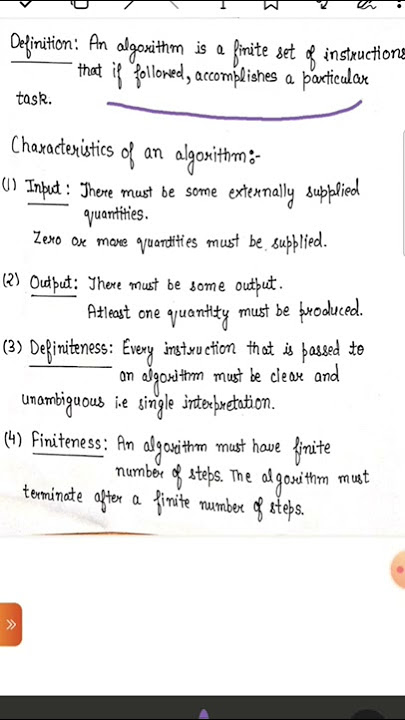 Definition: An algorithm is a finite set of instructions
that if followed, accomplishes a particular
task.
Characteristics of an algorithm:-
(1) Input: There must be some externally supplied
quantities.
Zero or more quantities must be supplied.
(2) Output: There must be some output.
Atleast one quantity must be produced.
(3) Definiteness: Every instruction that is passed to
an algorithm must be clear and
unambiguous i.e single interpretation.
(4) Finiteness: An algorithm must have finite
number of steps. The algorithm must
terminate after a finite number of steps.